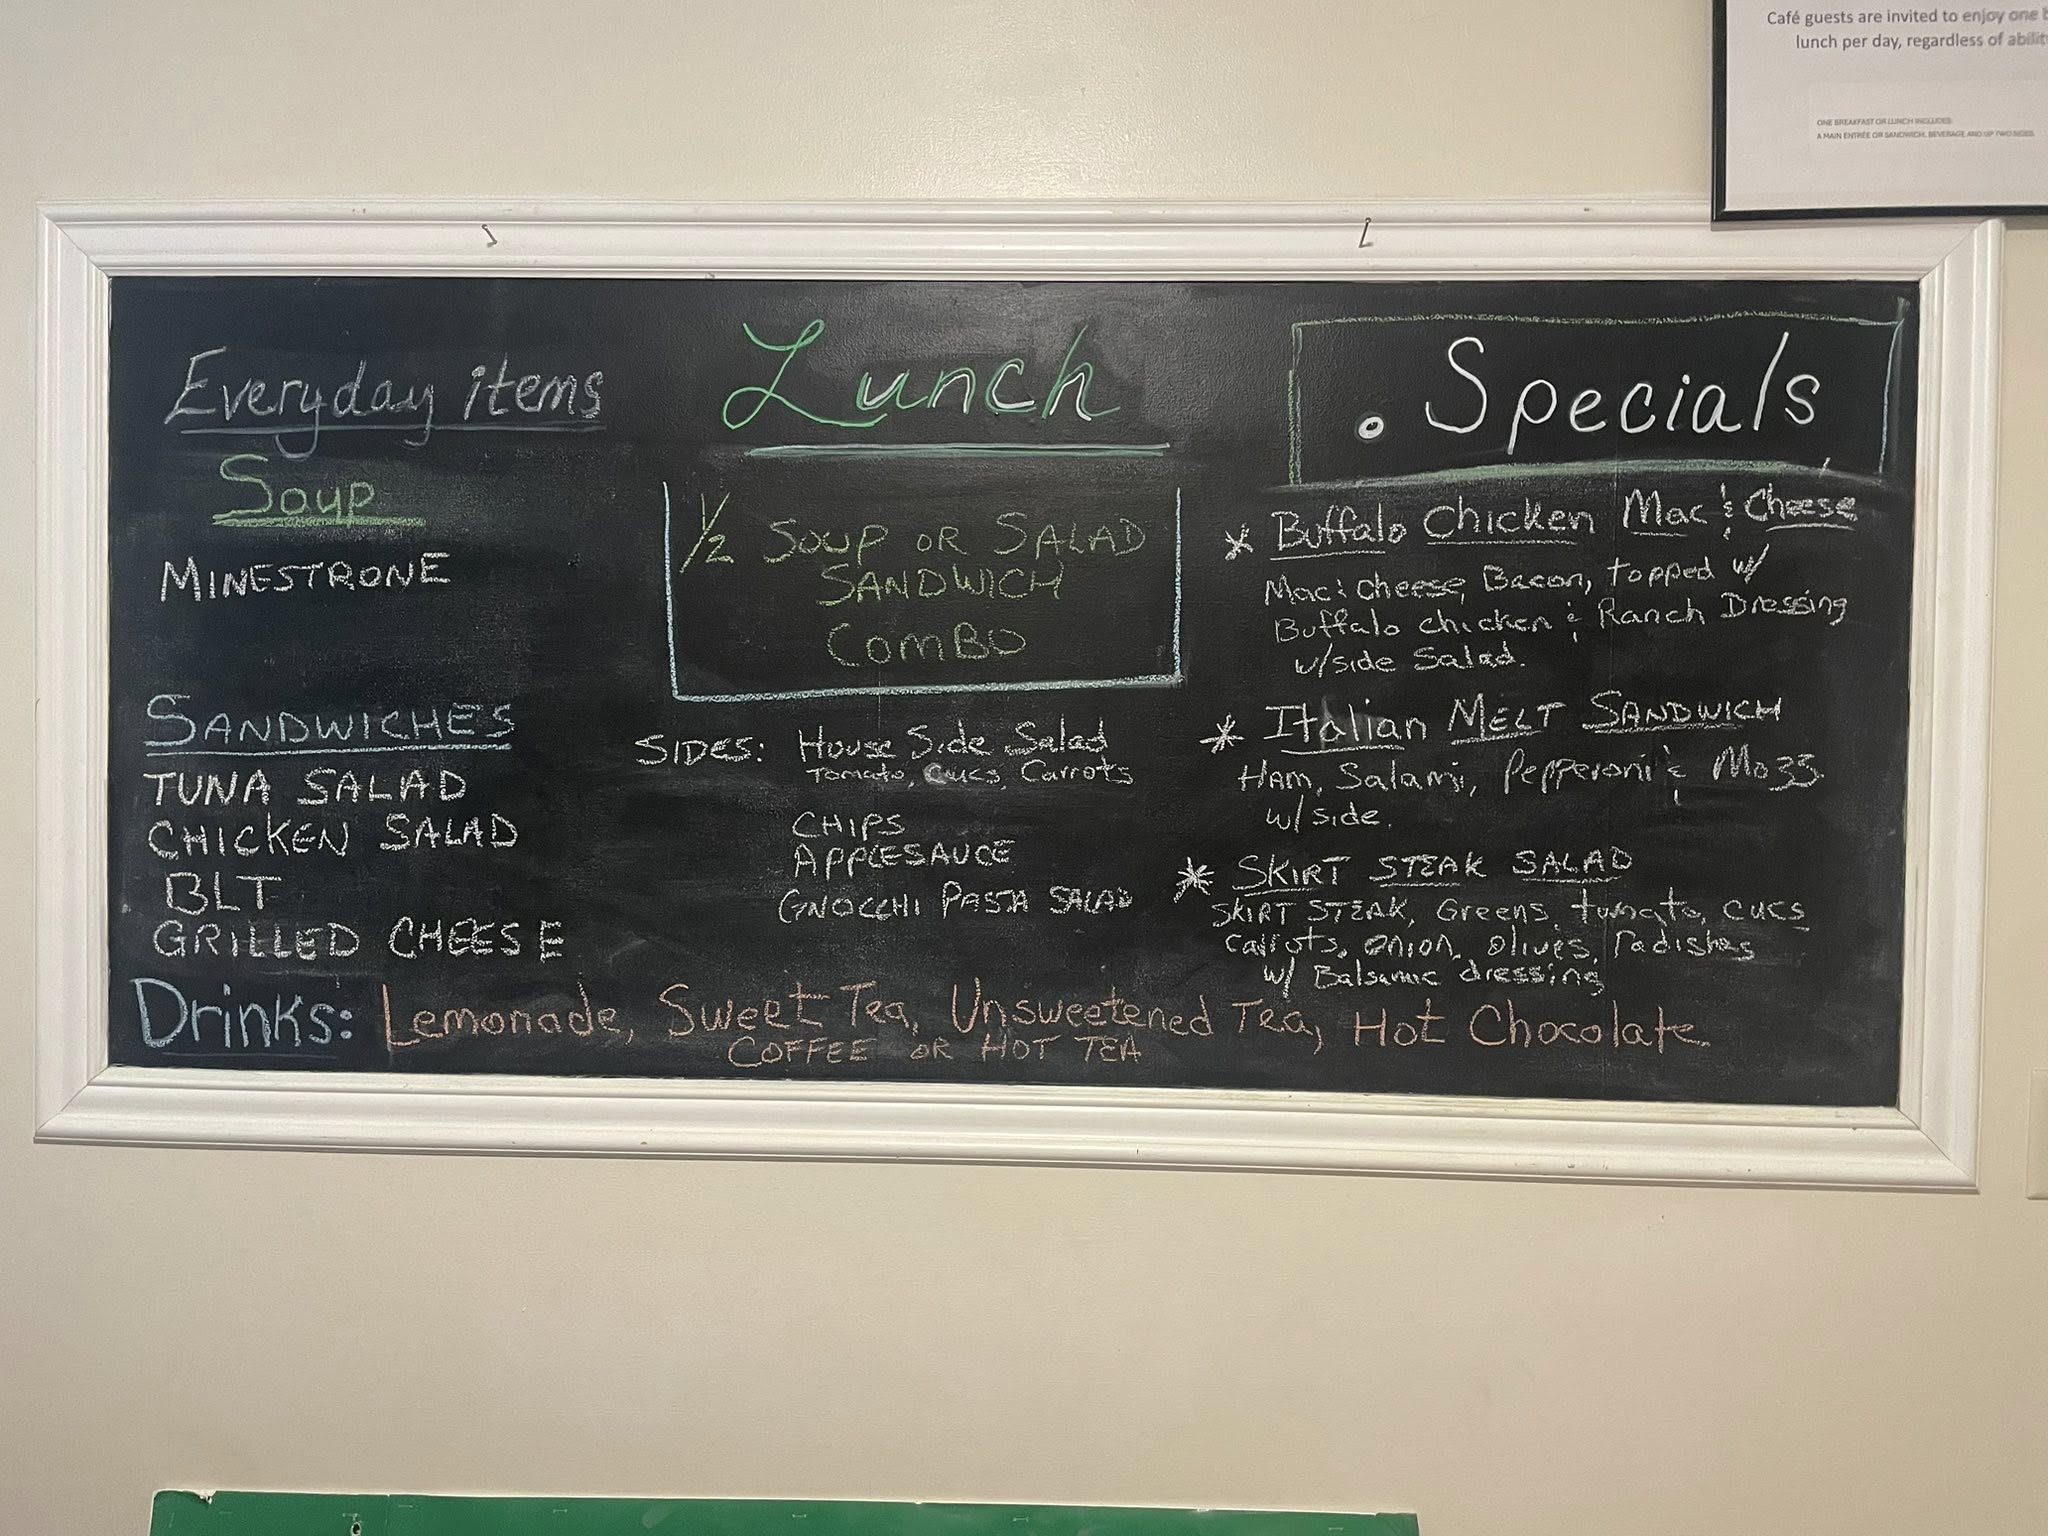 Café guests are invited to enjoy one
lunch per day, regardless of
ONE BREAKFAST OR LUNCH INCLUDES:
A MAIN ENTRÉE OR SANDWICH, BEVERAGE AND UP TWO SIDES.
Everyday items
Soup
MINESTRONE
SANDWICHES
TUNA SALAD
CHICKEN SALAD
BLT
GRILLED CHEESE
Lunch
1/2 SOUP OR SALAD
SANDWICH
COMBO
SIDES: House Side Salad
Tomato, Cucs, Carrots
CHIPS
APPLESAUCE
GNOCCHI PASTA SALAD
. Specials
* Buffalo Chicken Mac & Cheese
Mac & Cheese, Bacon, topped w/
Buffalo chicken & Ranch Dressing
w/side Salad.
* Italian MELT SANDWICH
HAM, Salami, Pepperoni & Mozz.
w/ side.
* SKIRT STEAK SALAD
SKIRT STEAK, Greens, tomato, cucs
carrots, onion, olives, radishes
w/ Balsamic dressing
Drinks: Lemonade, Sweet Tea, Unsweetened Tea, Hot Chocolate
COFFEE OR HOT TEA